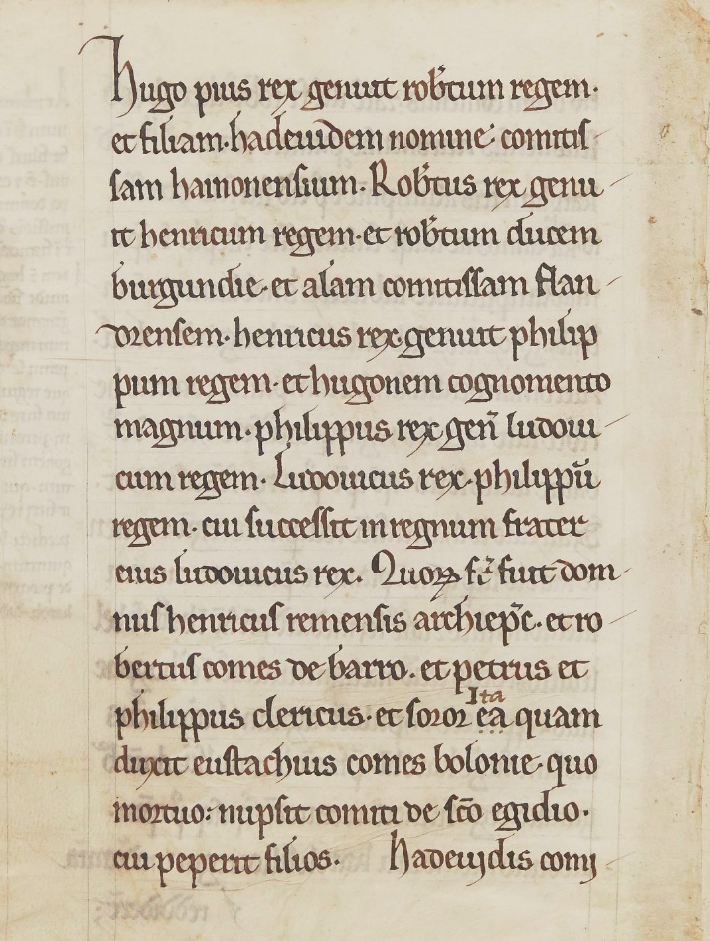 Hugo pius rex genuit rob̄tum regem·
et filiam·hadeuidem nomine· comitis-
sam hainonensium· Rob̄tus rex genu-
it henricum regem·et rob̄tum ducem
burgundie·et alam comitissam flan-
drensem·henricus rex·genuit philip
pum regem·et hugonem cognomento
magnum·philippus rex geñ ludoui-
cum regem· Ludouicus rex·philippū
regem·cui successit in regnum frater
eius ludouicus rex. Quoꝝ fr̄ fuit dom-
nus henricus remensis archiep̄c·et ro-
bertus comes de barro.et petrus et
Ita
philippus clericus·et soror ea quam
duxit eustachius comes bolonie·quo
mortuo: nupsit comiti de sc̄o egidio·
cui peperit filios· hadeuydis comi-